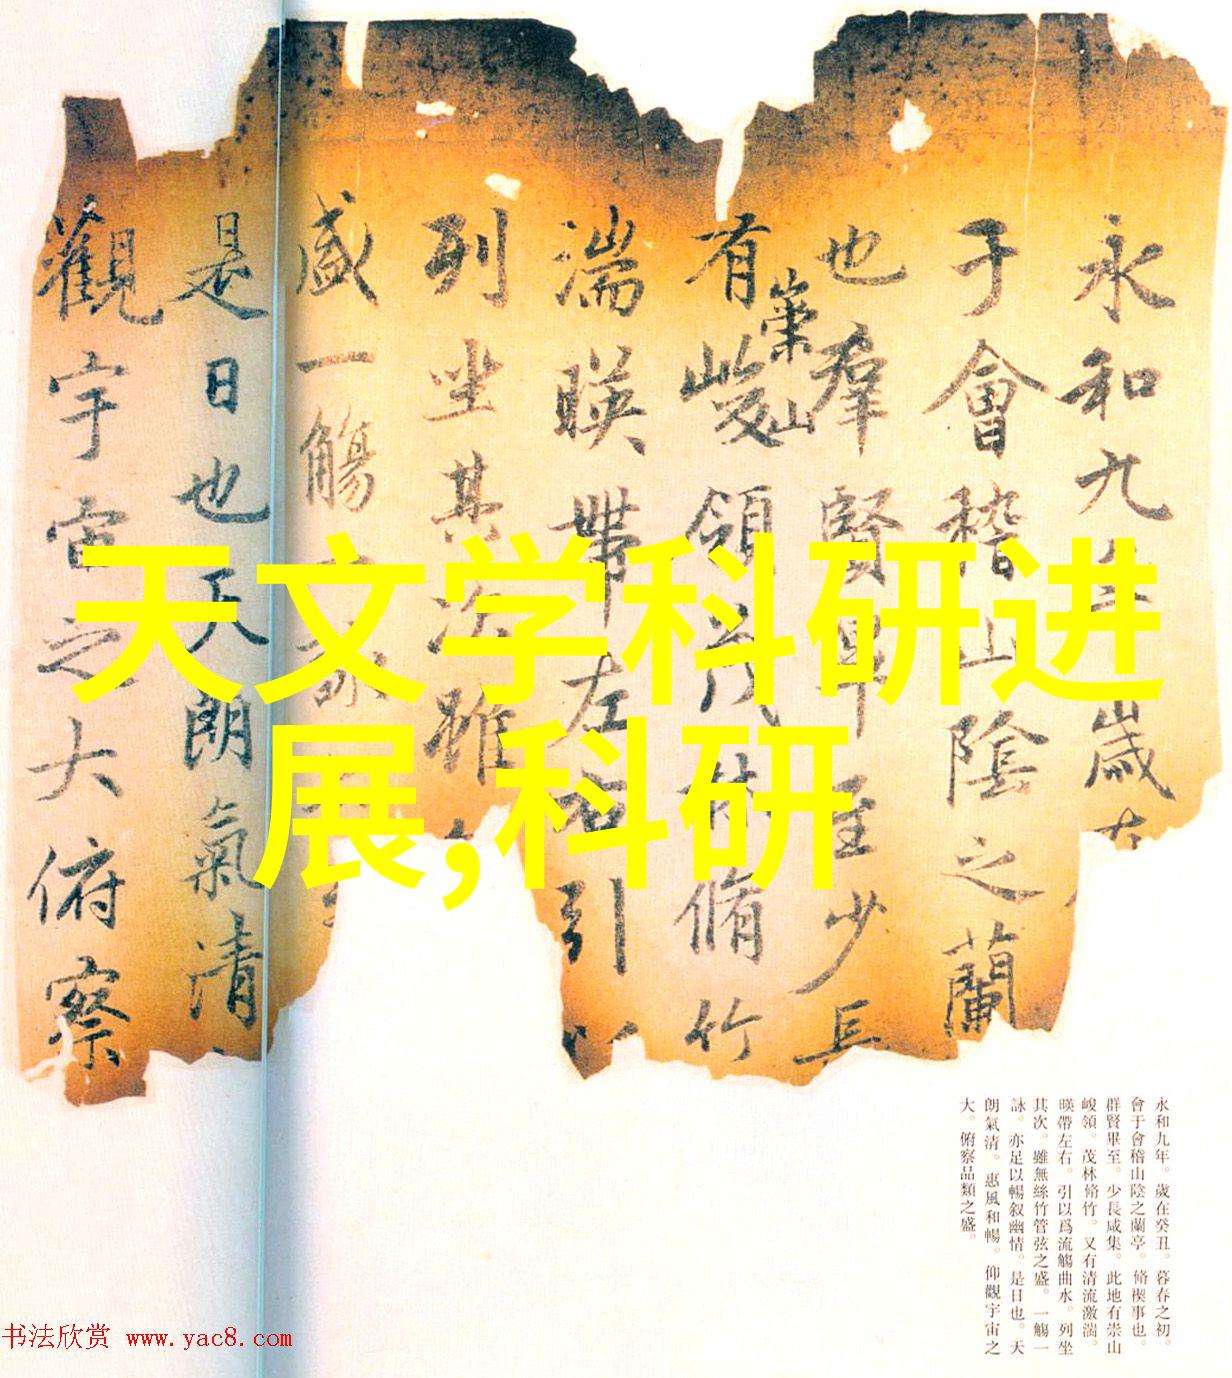 天文学科研进
展,科研
永和九年歲在
于會稽山陰之蘭
也羣賢畢至少長
有崇山峻領茂林脩竹
湍暎帶左右引以
列坐其次雖
盛一觴一詠
是日也天朗氣清
觀宇宙之大俯察
永和九年。歲在癸丑。暮春之初。
會于會稽山陰之蘭亭。脩禊事也。
群賢畢至。少長咸集。此地有崇山
峻領。茂林脩竹。又有清流激湍。
暎帶左右。引以爲流觴曲水。列坐
其次。雖無絲竹管弦之盛。一觴一
詠。亦足以暢叙幽情。是日也。天
朗氣清。惠風和暢。仰觀宇宙之
大。俯察品類之盛。
书法欣赏 www.yac8.com